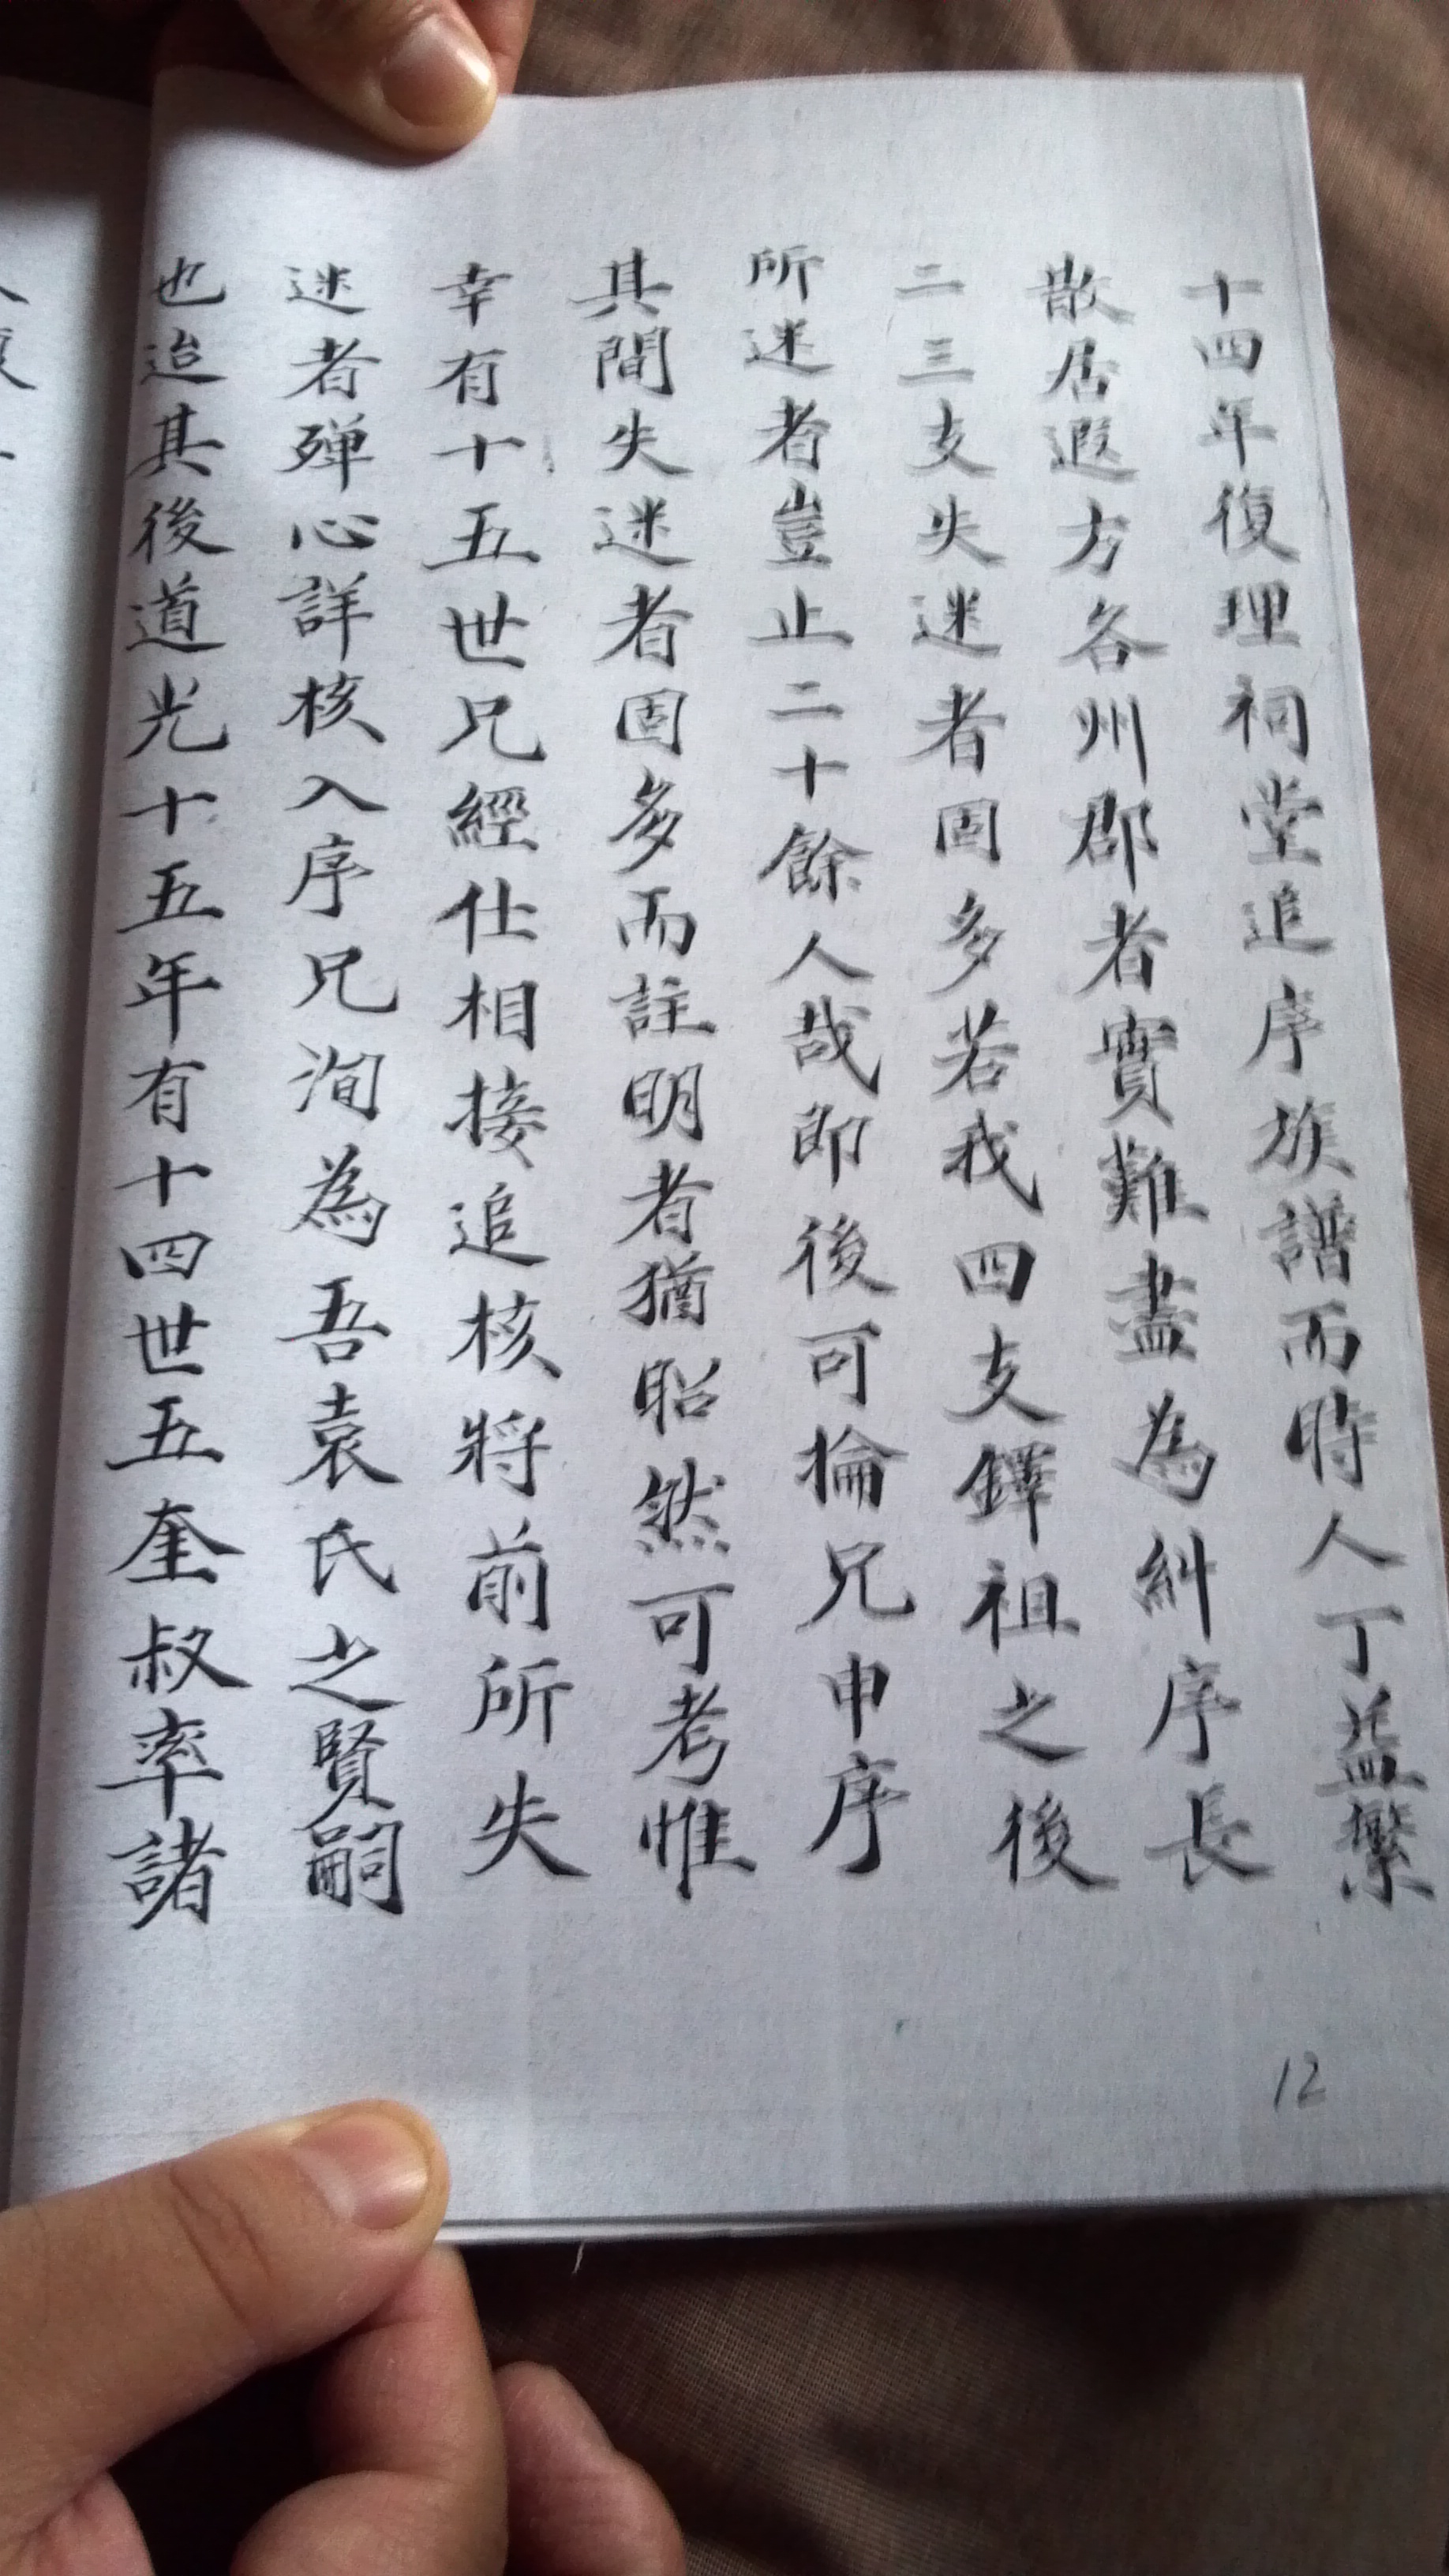 十四年復理祠堂追序族譜而時人丁益繁
散居遐方各州郡者實難盡為糾序長
二三支失迷者固多若我四支鐸祖之後
所迷者豈止二十餘人哉即後可掄兄申序
其間失迷者固多而註明者猶昭然可考惟
幸有十五世兄經仕相接追核將前所失
迷者殫心詳核入序兄洵為吾袁氏之賢嗣
也迨其後道光十五年有十四世五奎叔率諸
12